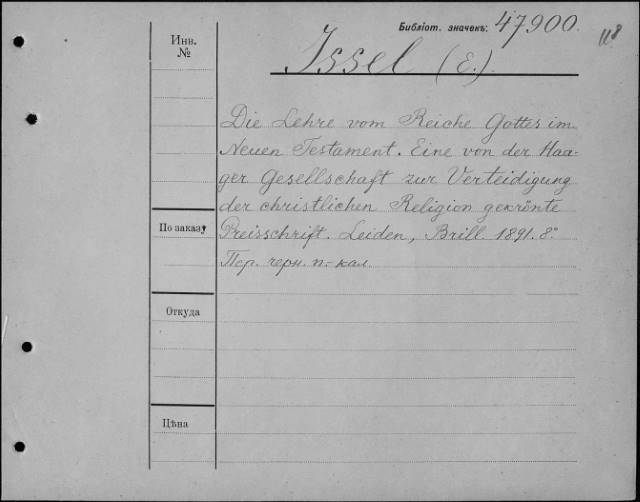 Библіот. значекъ: 47900.
118
Инв.
№
Issel (E.)
Die Lehre vom Reiche Gottes im
Neuen Testament. Eine von der Haa-
ger Gesellschaft zur Verteidigung
der christlichen Religion gekrönte
По заказу
Preisschrift. Leiden, Brill. 1891. 8°.
Пер. черн. п.-кал.
Откуда
Цѣна